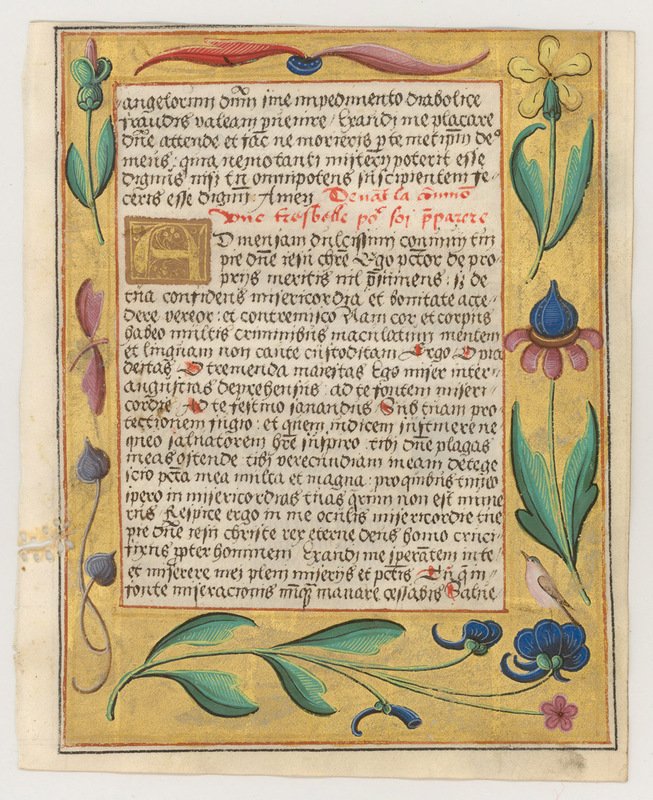 angelorum dñm sine impedimento diabolice
fraudis valeam pñenire . Exaudi me placare
dñe attende et fac ne morieris p te metipm deꝰ
meus . quia nemo tanti misterij poterit esse
dignus nisi tu omnipotens suscipientem fe
ceris esse dignũ . Amen Deuãt la cõmuniõ
vne tresbelle pᵒ soi p̃parere
AD mensam dulcissimi conuiuij tui
pie dñe iesu chr̃e Ego pctõr de pro
prijs meritis nil p̃sumens . sz de
tua confidens misericordia et bonitate acce
dere vereor : et contremisco Nam cor et corpus
habeo multis criminibus maculatum mentem
et linguam non caute custoditam Ergo O pia
deitas O tremenda maiestas Ego miser inter
angustias deprehensus . ad te fontem miseri
cordie Ad te festino sanandus Sub tuam pro
tectionem fugio : et quem iudicem sustinere ne
queo saluatorem h̃re suspiro . tibi dñe plagas
meas ostende tibi verecundiam meam detege
scio pctã mea multa et magna : pro quibus timeo
spero in misericordias tuas quarum non est nume
rus Respice ergo in me oculis misericordie tue
pie dñe iesu christe rex eterne deus homo cruci
fixus ppter hominem Exaudi me sperãtem in te
et miserere mei pleni miserijs et pctĩs Tu q̃ m
fonte miseracionis nũq̃ manare cessabis Salue